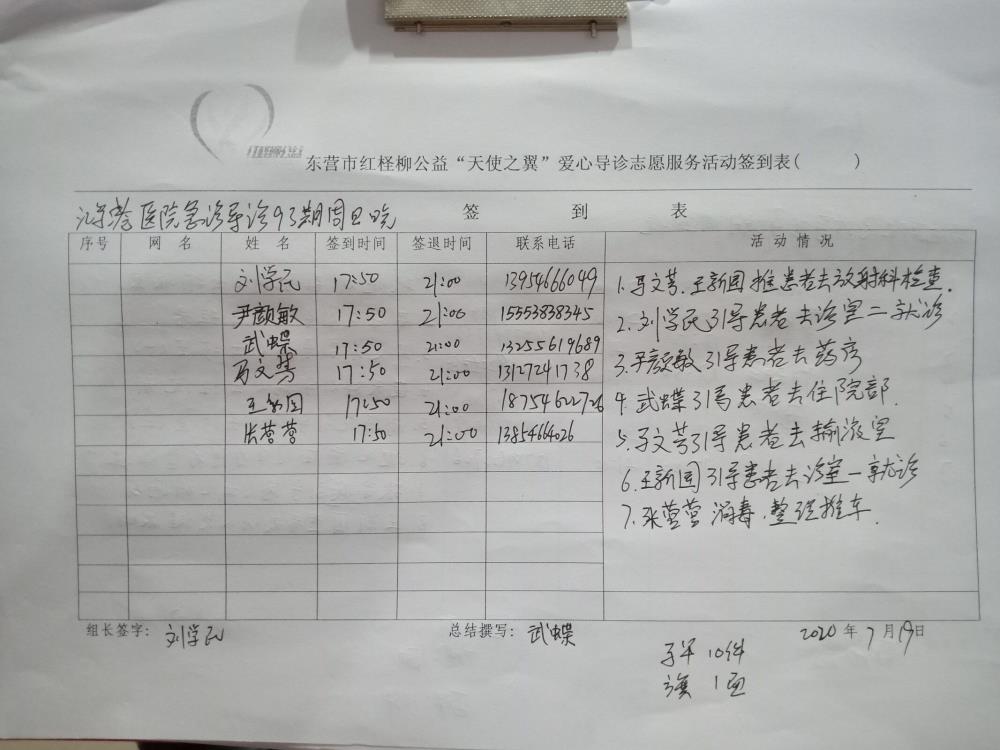 红柽柳公益
东营市红柽柳公益“天使之翼”爱心导诊志愿服务活动签到表( )
签 到 表
医院急诊导诊93期周日晚
序号 网 名 姓 名 签到时间 签退时间 联系电话 活 动 情 况
刘学民 17:50 21:00 13954666049
尹颜敏 17:50 21:00 15553838345
武蝶 17:50 21:00 13255619689
马文芳 17:50 21:00 13127241738
王新国 17:50 21:00 18754622726
张营营 17:50 21:00 1385466026
1.马文芳.王新国推患者去放射科检查.
2.刘学民引导患者去诊室二就诊
3.尹颜敏引导患者去药房
4.武蝶引导患者去住院部.
5.马文芳引导患者去输液室
6.王新国引导患者去诊室一就诊
7.张营营消毒.整理推车.
组长签字: 刘学民 总结撰写: 武蝶 2020年7月19日
10件
旗 1面